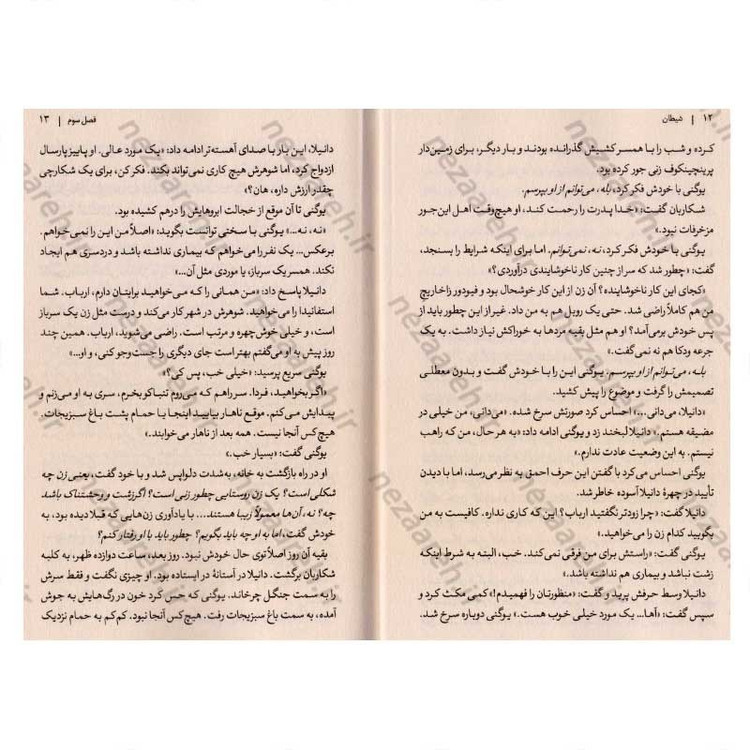 ۱۲ | شیطان
کرده و شب را با همسر کشیش گذرانده بودند و بار دیگر، برای زمین‌دار
پرینچینکوف زنی جور کرده بود.
یوگنی با خودش فکر کرد، بله، می‌توانم از او بپرسم.
شکاربان گفت: «خدا پدرت را رحمت کند، او هیچ‌وقت اهل این‌جور
مزخرفات نبود.»
یوگنی با خودش فکر کرد، نه، نمی‌توانم. اما برای اینکه شرایط را بسنجد،
گفت: «چطور شد که سر از چنین کار ناخوشایندی درآوردی؟»
«کجای این کار ناخوشاینده؟ آن زن از این کار خوشحال بود و فیودور زاخاریچ
من هم کاملاً راضی شد. حتی یک روبل هم به من داد. غیر از این چطور باید از
پس خودش برمی‌آمد؟ او هم مثل بقیه مردها به خوراکش نیاز داشت. به یک
جرعه ودکا هم نه نمی‌گفت.»
بله، می‌توانم از او بپرسم. یوگنی این را با خودش گفت و بدون معطلی
تصمیمش را گرفت و موضوع را پیش کشید.
«دانیلا، می‌دانی...» احساس کرد صورتش سرخ شده. «می‌دانی، من خیلی در
مضیقه هستم.» دانیلا لبخند زد و یوگنی ادامه داد: «به هر حال، من که راهب
نیستم. به این وضعیت عادت ندارم.»
یوگنی احساس می‌کرد با گفتن این حرف احمق به نظر می‌رسد، اما با دیدن
تأیید در چهرهٔ دانیلا آسوده خاطر شد.
دانیلا گفت: «چرا زودتر نگفتید ارباب؟ این که کاری نداره. کافیست به من
بگویید کدام زن را می‌خواهید.»
یوگنی گفت: «راستش برای من فرقی نمی‌کند. خب، البته به شرط اینکه
زشت نباشد و بیماری هم نداشته باشد.»
دانیلا وسط حرفش پرید و گفت: «منظورتان را فهمیدم!» کمی مکث کرد و
سپس گفت: «آها... یک مورد خیلی خوب هست.» یوگنی دوباره سرخ شد.
فصل سوم | ۱۳
دانیلا، این بار با صدای آهسته‌تر ادامه داد: «یک مورد عالی. او پاییز پارسال
ازدواج کرد، اما شوهرش هیچ کاری نمی‌تواند بکند. فکر کن، برای یک شکارچی
چقدر ارزش داره، هان؟»
یوگنی تا آن موقع از خجالت ابروهایش را درهم کشیده بود.
«نه، نه...» یوگنی با سختی توانست بگوید: «اصلاً من این را نمی‌خواهم.
برعکس... یک نفر را می‌خواهم که بیماری نداشته باشد و دردسری هم ایجاد
نکند. همسر یک سرباز، یا موردی مثل آن...»
دانیلا پاسخ داد: «من همانی را که می‌خواهید برایتان دارم، ارباب. شما
استفانیدا را می‌خواهید. شوهرش در شهر کار می‌کند و درست مثل زن یک سرباز
است، و خیلی خوش‌چهره و مرتب است. راضی می‌شوید، ارباب. همین چند
روز پیش به او می‌گفتم بهتر است جای دیگری را جست‌وجو کنی، و او...»
یوگنی سریع پرسید: «خیلی خب، پس کی؟»
«اگر بخواهید، فردا. سر راهم که می‌روم تنباکو بخرم، سری به او می‌زنم و
پیدایش می‌کنم. موقع ناهار بیایید اینجا یا حمام پشت باغ سبزیجات.
هیچ‌کس آنجا نیست. همه بعد از ناهار می‌خوابند.»
یوگنی گفت: «بسیار خب.»
او در راه بازگشت به خانه، به‌شدت دلواپس شد و با خود گفت، یعنی زن چه
شکلی است؟ یک زن روستایی چطور زنی است؟ اگر زشت و وحشتناک باشد
چه؟ نه، آن‌ها معمولاً زیبا هستند... با یادآوری زن‌هایی که قبلا دیده بود، به
خودش گفت، اما به او چه باید بگویم؟ چطور باید با او رفتار کنم؟
بقیه آن روز اصلاً توی حال خودش نبود. روز بعد، ساعت دوازده ظهر، به کلبه
شکاربان برگشت. دانیلا در آستانهٔ در ایستاده بود. او چیزی نگفت و فقط سرش
را به سمت جنگل چرخاند. یوگنی که حس کرد خون در رگ‌هایش به جوش
آمده، به سمت باغ سبزیجات رفت. هیچ‌کس آنجا نبود. کم‌کم به حمام نزدیک
nezaareh.ir